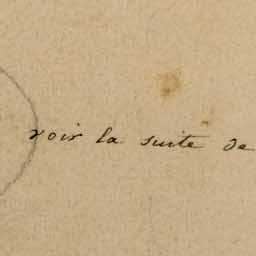 voir la suite de